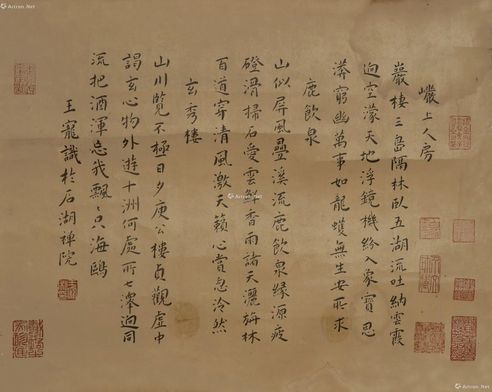 巖上人房
巖棲三島隔林臥五湖流吐納雲霞
迥空濛天地浮鏡機紛入象實思
濟窮幽萬事如龍蠖無生安所求
鹿飲泉
山似屏風疊溪流鹿飲泉緣源疲
磴滑掃石愛雲鮮香雨諸天灑
百道穿清風激天籟心賞忽泠然
玄秀樓
山川覽不極日夕庾公樓貞觀虛中
謁玄心物外遊十洲何處所七澤迥同
流把酒渾忘我飄只海鷗
王寵識於石湖禪院
Artron.Net
Artron.Net
Artron.Net